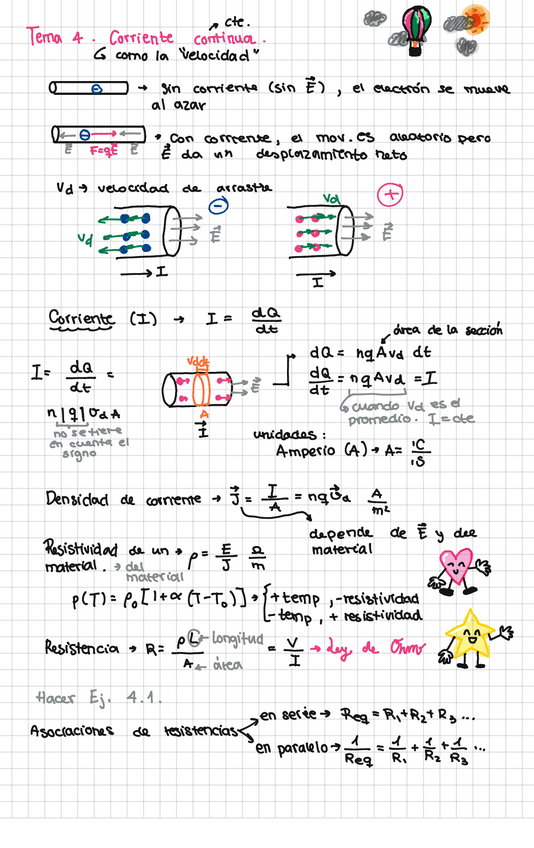 cte.
Tema 4. Corriente continua.
como la "velocidad"
⊖ → Sin corriente (sin E⃗), el electrón se mueve
al azar
⊖ E⃗ F=qE⃗ E⃗ → Con corriente, el mov. es aleatorio pero
E⃗ da un desplazamiento neto
Vd → velocidad de arrastre
Vd E⃗ ⊖ Vd E⃗ ⊕
→ I → I
Corriente (I) → I = dQ/dt
área de la sección
I = dQ/dt =
n|q|υdA
no se tiene
en cuenta el
signo
Vddt
A
E⃗
I
dQ = nqAvd dt
dQ/dt = nqAvd = I
cuando Vd es el
promedio. I=cte
unidades:
Amperio (A) → A = 1C/1S
Densidad de corriente → J⃗ = I/A = nqυ⃗d A/m²
depende de E⃗ y del
material
Resistividad de un → ρ = E/J Ω/m
material. → del
material
ρ(T) = ρ₀[1+α(T-T₀)] → {+temp, -resistividad
-temp, + resistividad
Resistencia → R = ρL/A = V/I → Ley de Ohm
longitud
área
Hacer Ej. 4.1.
Asociaciones de resistencias
en serie → Req = R₁+R₂+R₃ ...
en paralelo → 1/Req = 1/R₁ + 1/R₂ + 1/R₃ ...